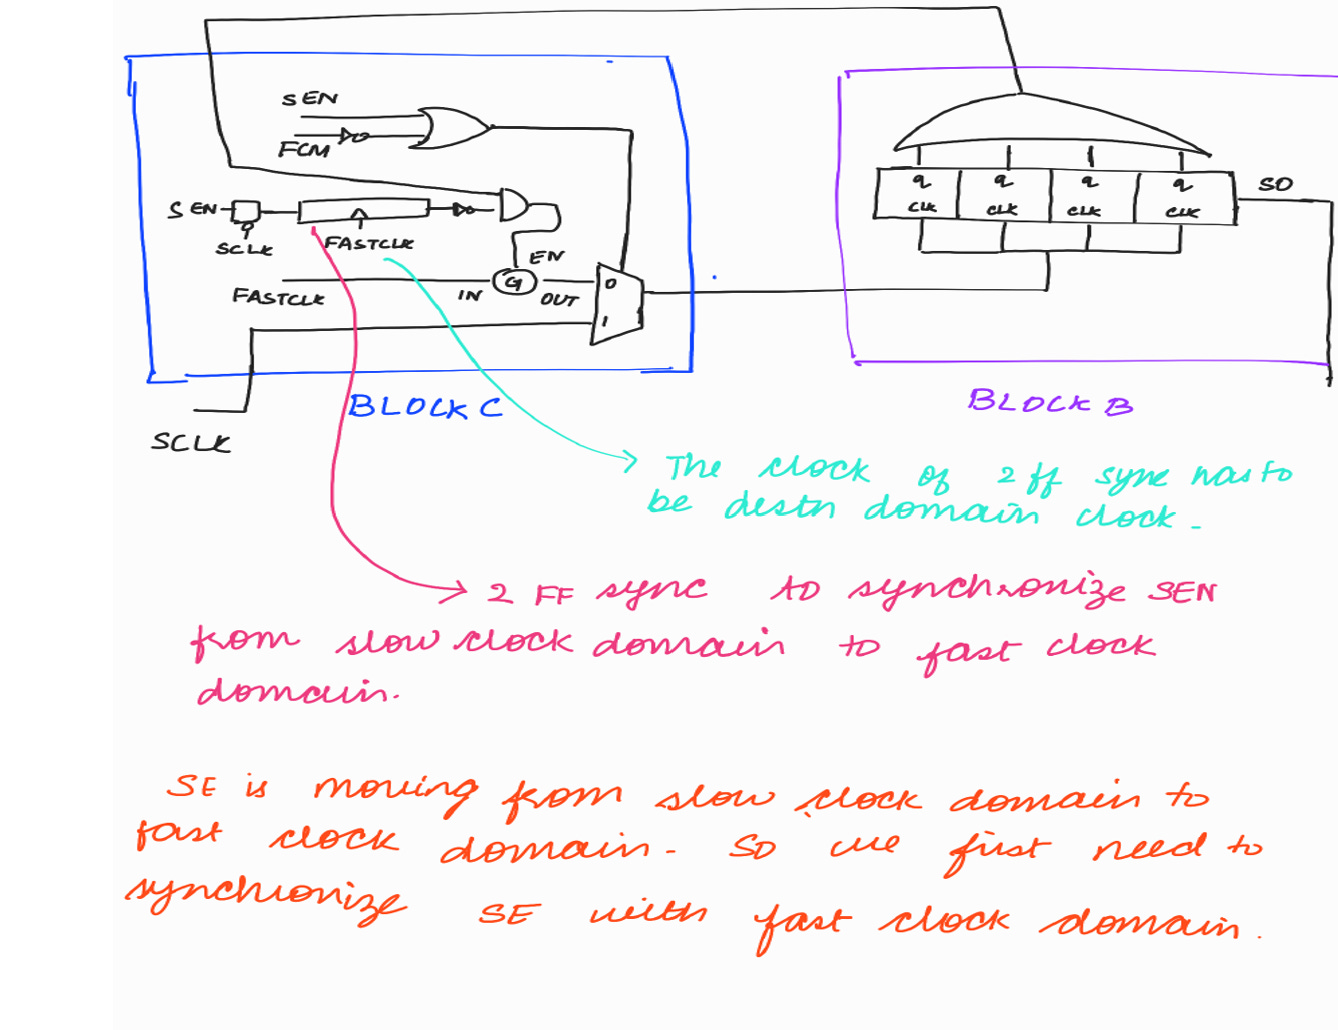 SEN
FCM
SEN
SCLK
FASTCLK
EN
FASTCLK
IN
G
OUT
0
1
q q q q
CLK CLK CLK CLK
SO
BLOCK C
BLOCK B
SCLK
The clock of 2 ff sync has to
be destn domain clock.
2 FF sync to synchronize SEN
from slow clock domain to fast clock
domain.
SE is moving from slow clock domain to
fast clock domain. So we first need to
synchronize SE with fast clock domain.